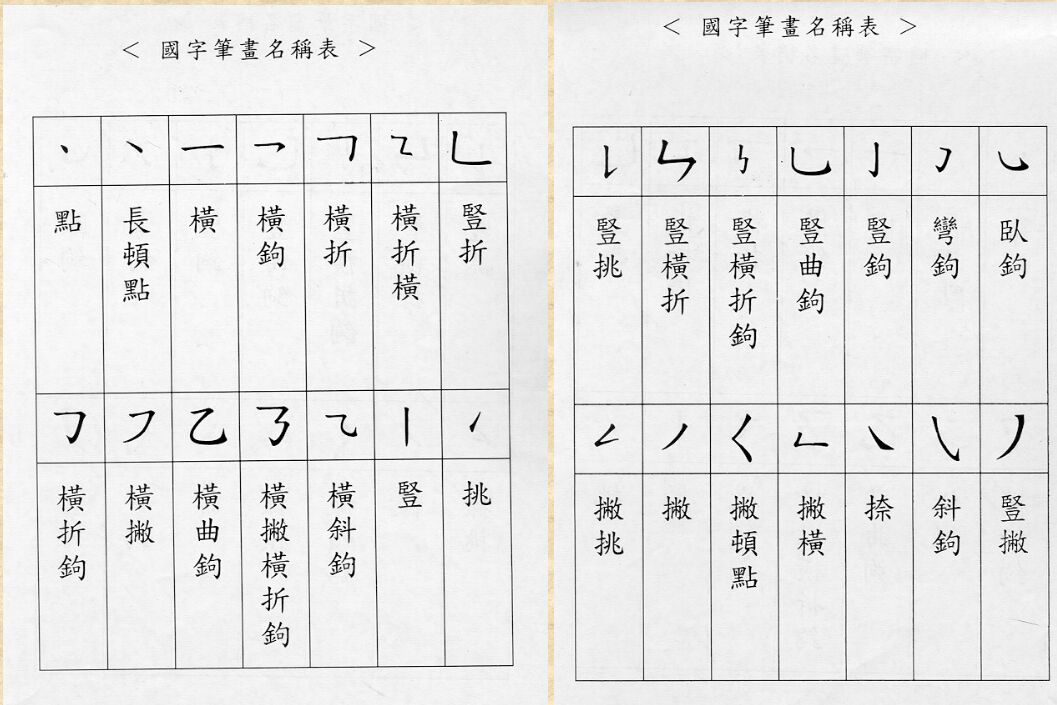 ＜ 國字筆畫名稱表 ＞
點
長頓點
橫
橫鉤
橫折
橫折橫
豎折
橫折鉤
橫撇
橫曲鉤
橫撇橫折鉤
橫斜鉤
豎
挑
＜ 國字筆畫名稱表 ＞
豎挑
豎橫折
豎橫折鉤
豎曲鉤
豎鉤
彎鉤
臥鉤
撇挑
撇
撇頓點
撇橫
捺
斜鉤
豎撇